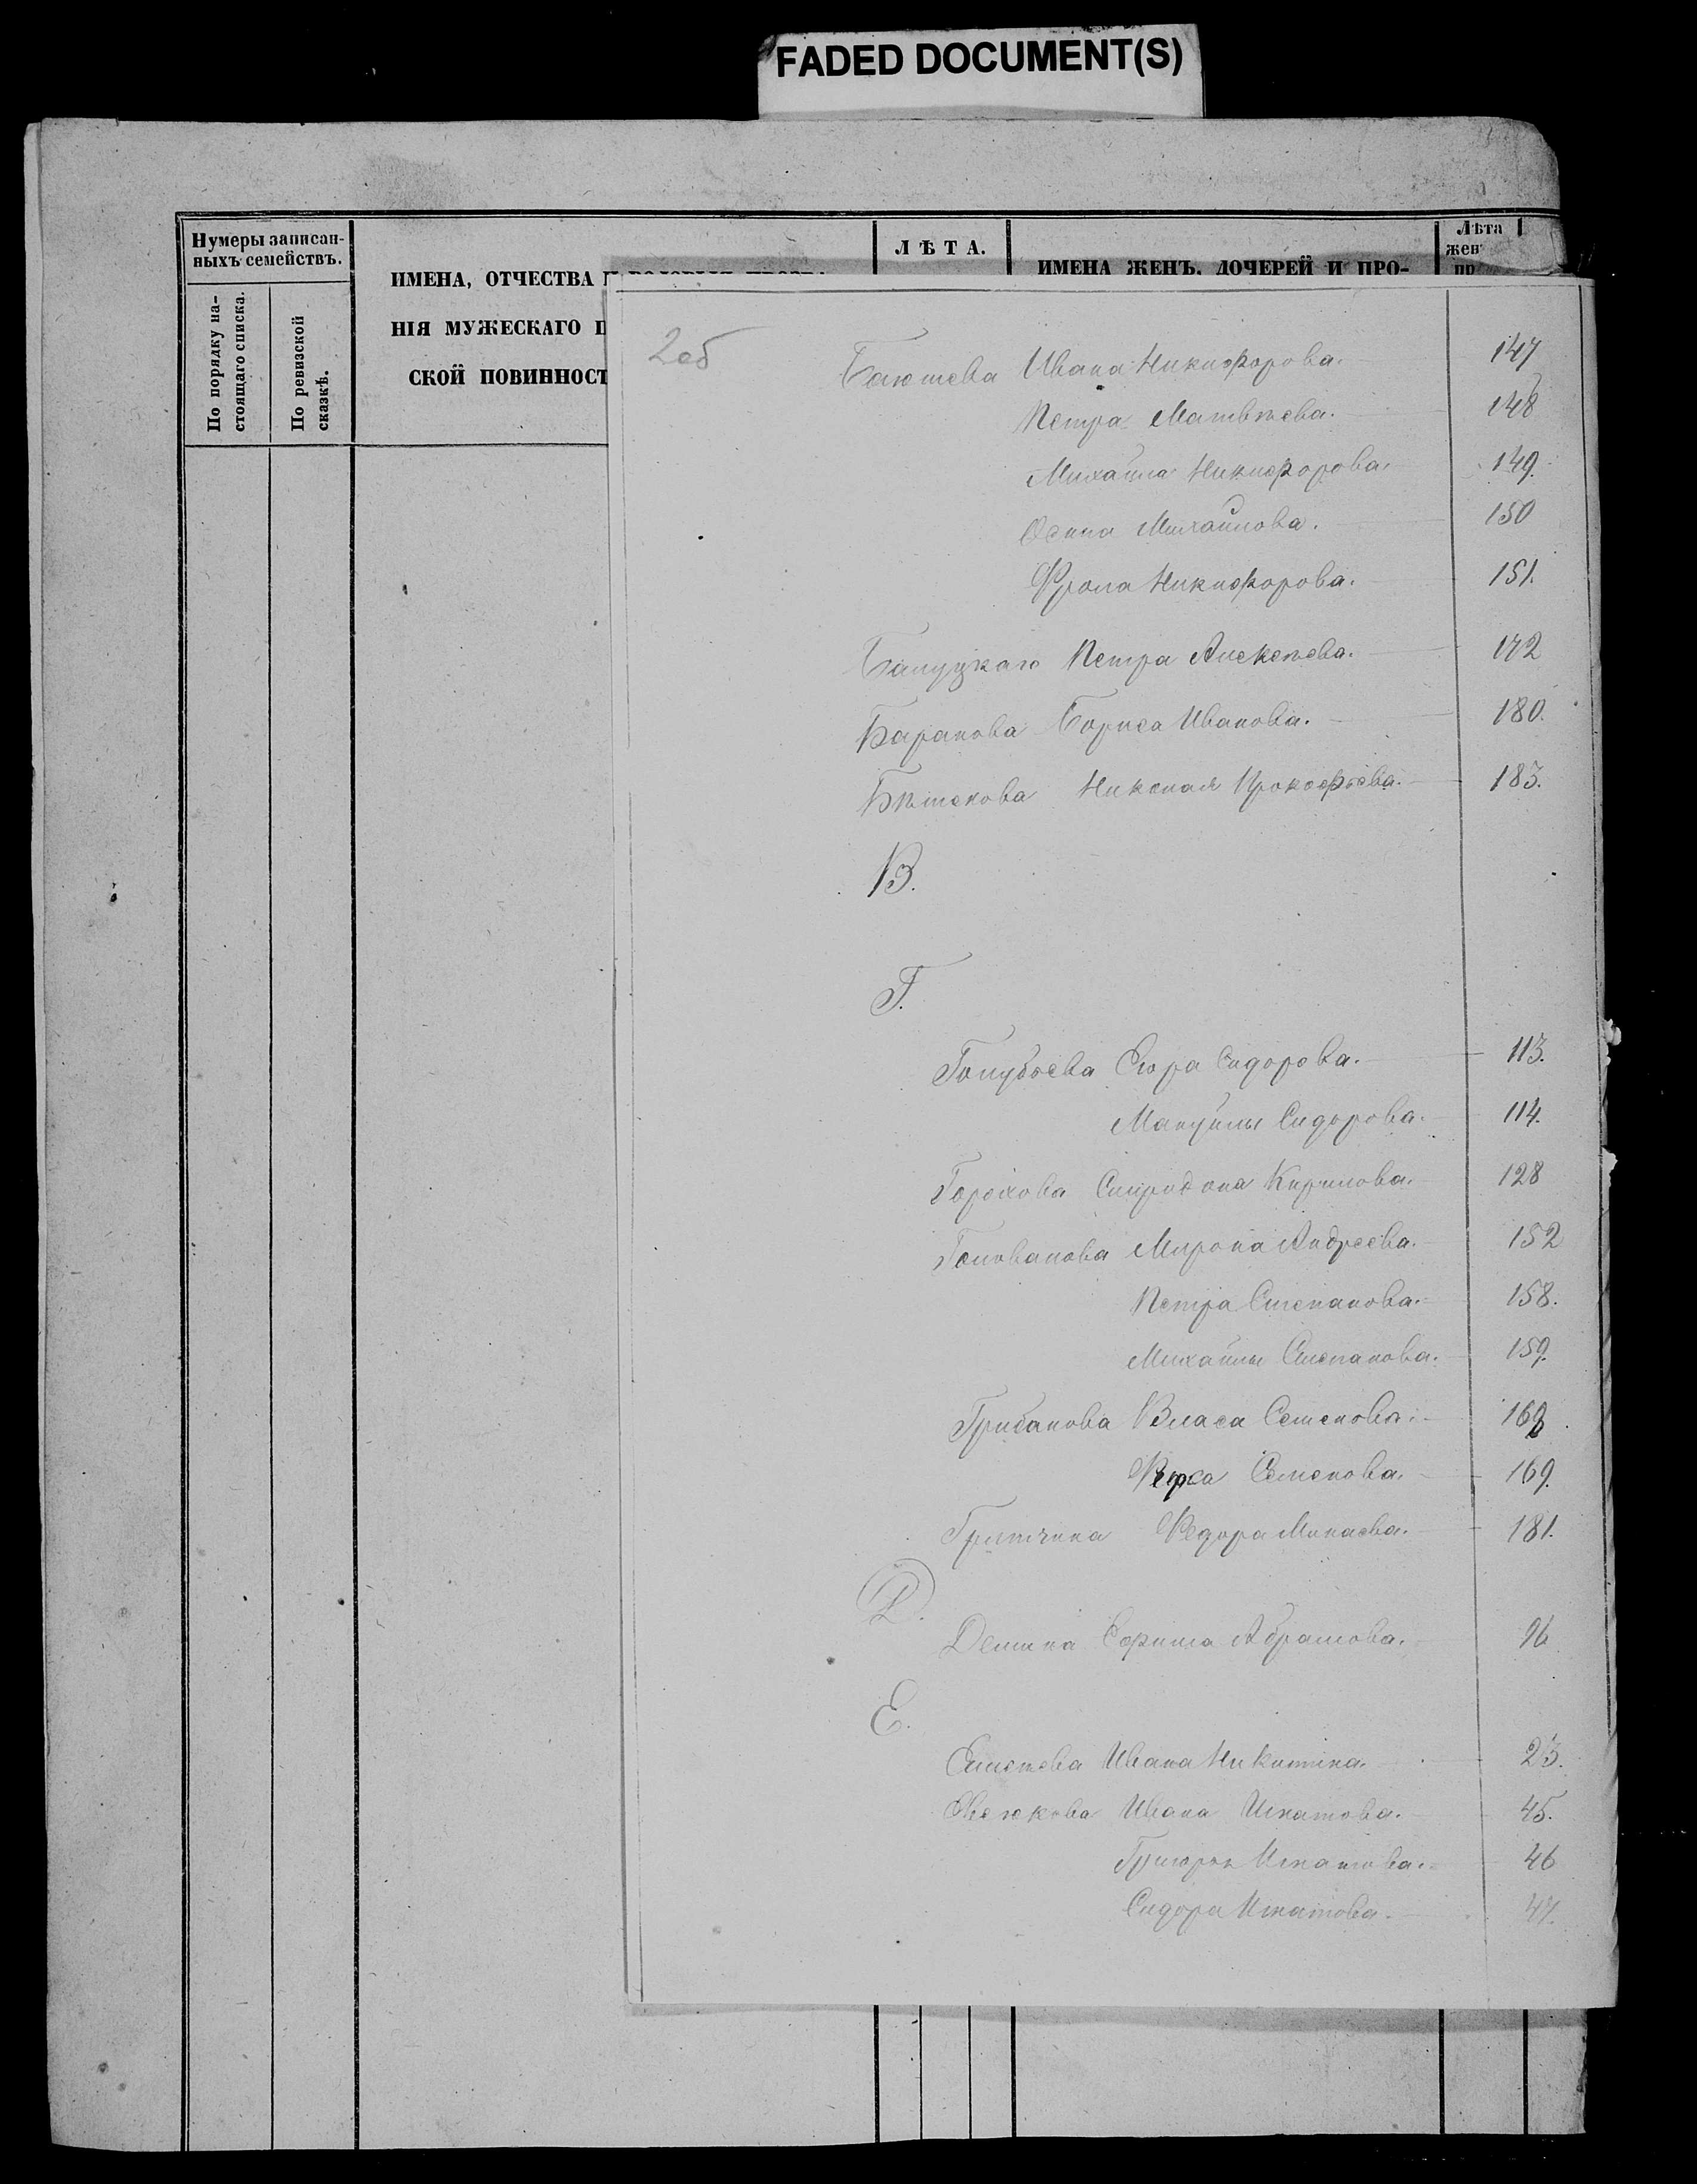 FADED DOCUMENT(S)
Нумеры записан-
ныхъ семействъ.
По порядку на-
стоящаго списка.
По ревизской
сказкѣ.
ИМЕНА, ОТЧЕСТВА
НІЯ МУЖЕСКАГО П
СКОЙ ПОВИННОСТ
ЛѢТА.
ИМЕНА ЖЕНЪ, ДОЧЕРЕЙ И ПРО-
Лѣта
жен
пр
2об
Баютева Ивана Никифорова. 147
Петра Матвѣева. 148
Михайла Никифорова. 149.
Осипа Михайлова. 150
Фрола Никифорова. 151.
Петра Алексѣева. 172
Баранова Бориса Ивановa. 180.
Николая Прокофьева. 183.
В.
Г.
Голубьева Егора Сидорова. 113.
Мануйлы Сидорова. 114.
Горохова Спиридона Кирилова. 128
Голованова Мирона Андреева. 152
Петра Степанова. 158.
Михайлы Степанова. 159.
Грибанова Власа Семенова. 168
Семенова. 169.
Федора Минаева. 181.
Д.
Демина Ефима Абрамова. 96
Е.
Ивана Никитина. 23.
Евсюкова Ивана Игнатова. 45.
Григорья Игнатова. 46
Сидора Игнатова. 47.